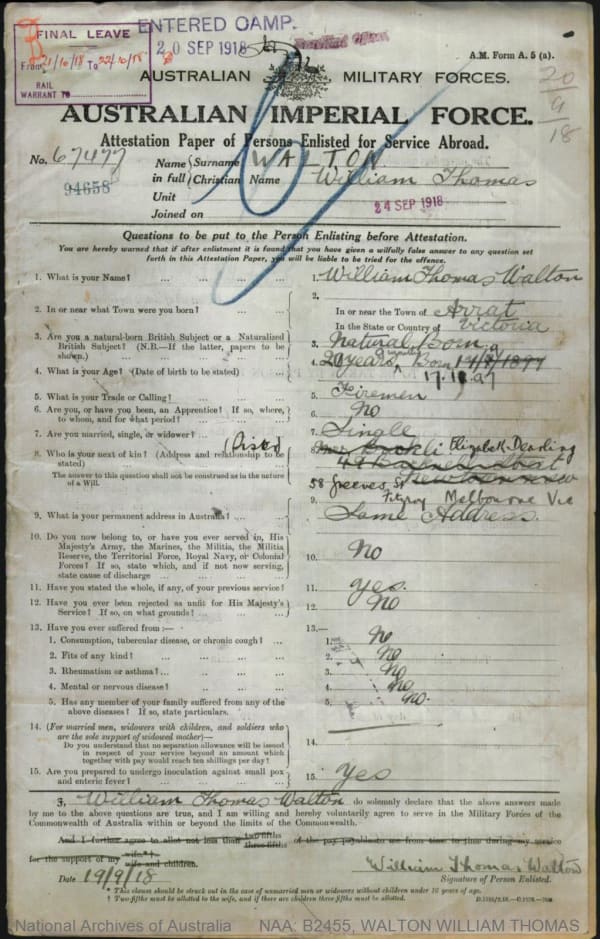 FINAL LEAVE
From 21/10/18 To 22/10/18
RAIL
WARRANT TO
ENTERED CAMP.
20 SEP 1918
A.M. Form A. 5 (a).
20
9
18
AUSTRALIAN MILITARY FORCES.
AUSTRALIAN IMPERIAL FORCE.
Attestation Paper of Persons Enlisted for Service Abroad.
No. 67477
94658
Name in full { Surname WALTON
Christian Name William Thomas
Unit
Joined on 24 SEP 1918
Questions to be put to the Person Enlisting before Attestation.
You are hereby warned that if after enlistment it is found that you have given a wilfully false answer to any question set
forth in this Attestation Paper, you will be liable to be tried for the offence.
1. What is your Name? ... 1. William Thomas Walton
2. In or near what Town were you born? ... 2. In or near the Town of Ararat
In the State or Country of Victoria
3. Are you a natural-born British Subject or a Naturalized
British Subject? (N.B.—If the latter, papers to be
shown.) 3. Natural Born
4. What is your Age? (Date of birth to be stated) 4. 20 years Born
17.10.97
5. What is your Trade or Calling? 5. Firemen
6. Are you, or have you been, an Apprentice? If so, where,
to whom, and for what period? 6. No
7. Are you married, single, or widower? 7. Single
8. Who is your next of kin? (Address and relationship to be
stated) (Sister) Elizabeth Dearling
The answer to this question shall not be construed as in the nature
of a Will.
58 Greeves St
Fitzroy Melbourne Vic
9. What is your permanent address in Australia? 9. Same Address.
10. Do you now belong to, or have you ever served in, His
Majesty's Army, the Marines, the Militia, the Militia
Reserve, the Territorial Force, Royal Navy, or Colonial
Forces? If so, state which, and if not now serving,
state cause of discharge 10. No
11. Have you stated the whole, if any, of your previous service? 11. yes.
12. Have you ever been rejected as unfit for His Majesty's
Service? If so, on what grounds? 12. No
13. Have you ever suffered from :— 13.—
1. Consumption, tubercular disease, or chronic cough? 1. No
2. Fits of any kind? 2. No
3. Rheumatism or asthma? 3. No
4. Mental or nervous disease? 4. No
5. Has any member of your family suffered from any of the
above diseases? If so, state particulars. 5. No.
14. (For married men, widowers with children, and soldiers who
are the sole support of widowed mother)—
Do you understand that no separation allowance will be issued
in respect of your service beyond an amount which
together with pay would reach ten shillings per day? 14.
15. Are you prepared to undergo inoculation against small pox
and enteric fever? 15. Yes
I, William Thomas Walton do solemnly declare that the above answers made
by me to the above questions are true, and I am willing and hereby voluntarily agree to serve in the Military Forces of the
Commonwealth of Australia within or beyond the limits of the Commonwealth.
And I further agree to allot not less than two-fifths three-fifths of the pay payable to me from time to time during my service
for the support of my wife*† wife and children.
Date 19/9/18 William Thomas Walton
Signature of Person Enlisted.
* This clause should be struck out in the case of unmarried men or widowers without children under 16 years of age.
† Two-fifths must be allotted to the wife, and if there are children three-fifths must be allotted.
National Archives of Australia NAA: B2455, WALTON WILLIAM THOMAS